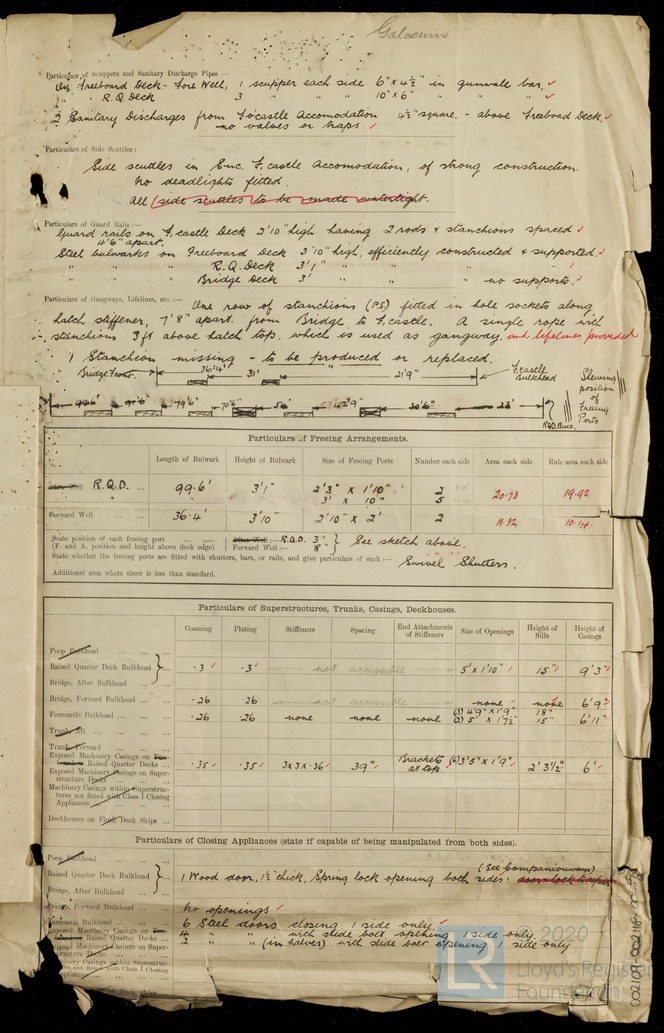 Galacum
Particulars of Scuppers and Sanitary Discharge Pipes —
On Freeboard Deck - Fore Well, 1 scupper each side 6" x 4½" in gunwale bar.
" R.Q Deck 3 " " " 10" x 6" " "
2 Sanitary Discharges from F'ocastle Accomodation 4½" square. - above Freeboad Deck.
no valves or traps.
Particulars of Side Scuttles :
Side scuttles in Enc. F.castle Accomodation, of strong construction.
No deadlights fitted.
All side scuttles to be made watertight.
Particulars of Guard Rails :—
Guard rails on F.castle Deck 2'10" high having 2 rods & stanchions spaced
4'6" apart.
Steel bulwarks on Freeboard Deck 3'10" high, efficiently constructed & supported.
" " " R.Q. Deck 3'1" " " "
" " " Bridge Deck 3' " " " no supports.
Particulars of Gangways, Lifelines, etc. :— One row of stanchions (P.S) fitted in hole sockets along
hatch stiffener, 7'8" apart, from Bridge to F.castle. A single rope with
stanchions 3ft above hatch top, which is used as gangway. and lifelines provided
1 Stanchion missing - to be produced or replaced.
Bridge Front. 36'4" 31' 21'9" F.castle Bulkhead
Shewing position of Freeing Ports
Particulars of Freeing Arrangements.
Length of Bulwark Height of Bulwark Size of Freeing Ports Number each side Area each side Rule area each side
After Well R.Q.D. ... 99.6' 3'1" 2'3" x 1'10" 2 20.73 19.92
" 3' x 10" 5
Forward Well ... 36.4' 3'10" 2'10" x 2' 2 11.32 10.14
State position of each freeing port ... ... After Well :— R.Q.D. 3" } See sketch above.
(F. and A. position and height above deck edge) Forward Well :— 8"
State whether the freeing ports are fitted with shutters, bars, or rails, and give particulars of such :— Swivel Shutters.
Additional area where sheer is less than standard.
Particulars of Superstructures, Trunks, Casings, Deckhouses.
Coaming Plating Stiffeners Spacing End Attachments of Stiffeners Size of Openings Height of Sills Height of Casings
Poop Bulkhead ... ... ...
Raised Quarter Deck Bulkhead ... } .3 .3 not accessible 5' x 1'10" 15" 9'3"
Bridge, After Bulkhead ... ...
Bridge, Forward Bulkhead ... ... .26 .26 not accessible none none 6'9"
Forecastle Bulkhead ... ... .26 .26 none none none (3) 4'9" x 1'9" 18" 6'11"
(3) 5' x 1'7½" 15"
Trunk, Aft ... ... ...
Trunk, Forward ... ... ...
Exposed Machinery Casings on Free-
board Raised Quarter Decks ... .35 .35 3 x 3 x .36 39" Brackets at top (6) 3'3" x 1'9" 2'3½" 6'
Exposed Machinery Casings on Super-
structure Decks ... ... ...
Machinery Casings within Superstruc-
tures not fitted with Class 1 Closing
Appliances ... ... ...
Deckhouses on Flush Deck Ships ... ...
Particulars of Closing Appliances (state if capable of being manipulated from both sides).
Poop Bulkhead ... ... ...
(See Companionway)
Raised Quarter Deck Bulkhead ... } 1 Wood door, 1½" thick, Spring lock opening both sides:
Bridge, After Bulkhead ...
Bridge, Forward Bulkhead ... ... No openings
Forecastle Bulkhead ... ... 6 Steel doors closing 1 side only.
Exposed Machinery Casings on Free-
board Raised Quarter Decks ... 4 " " with slide bolt opening 1 side only
Exposed Machinery Casings on Super-
structure Decks ... 2 " " (in halves) with slide bolt opening 1 side only
Machinery Casings within Superstruc-
tures not fitted with Class 1 Closing
Appliances
© 2020
LR
Lloyd's Register
Foundation